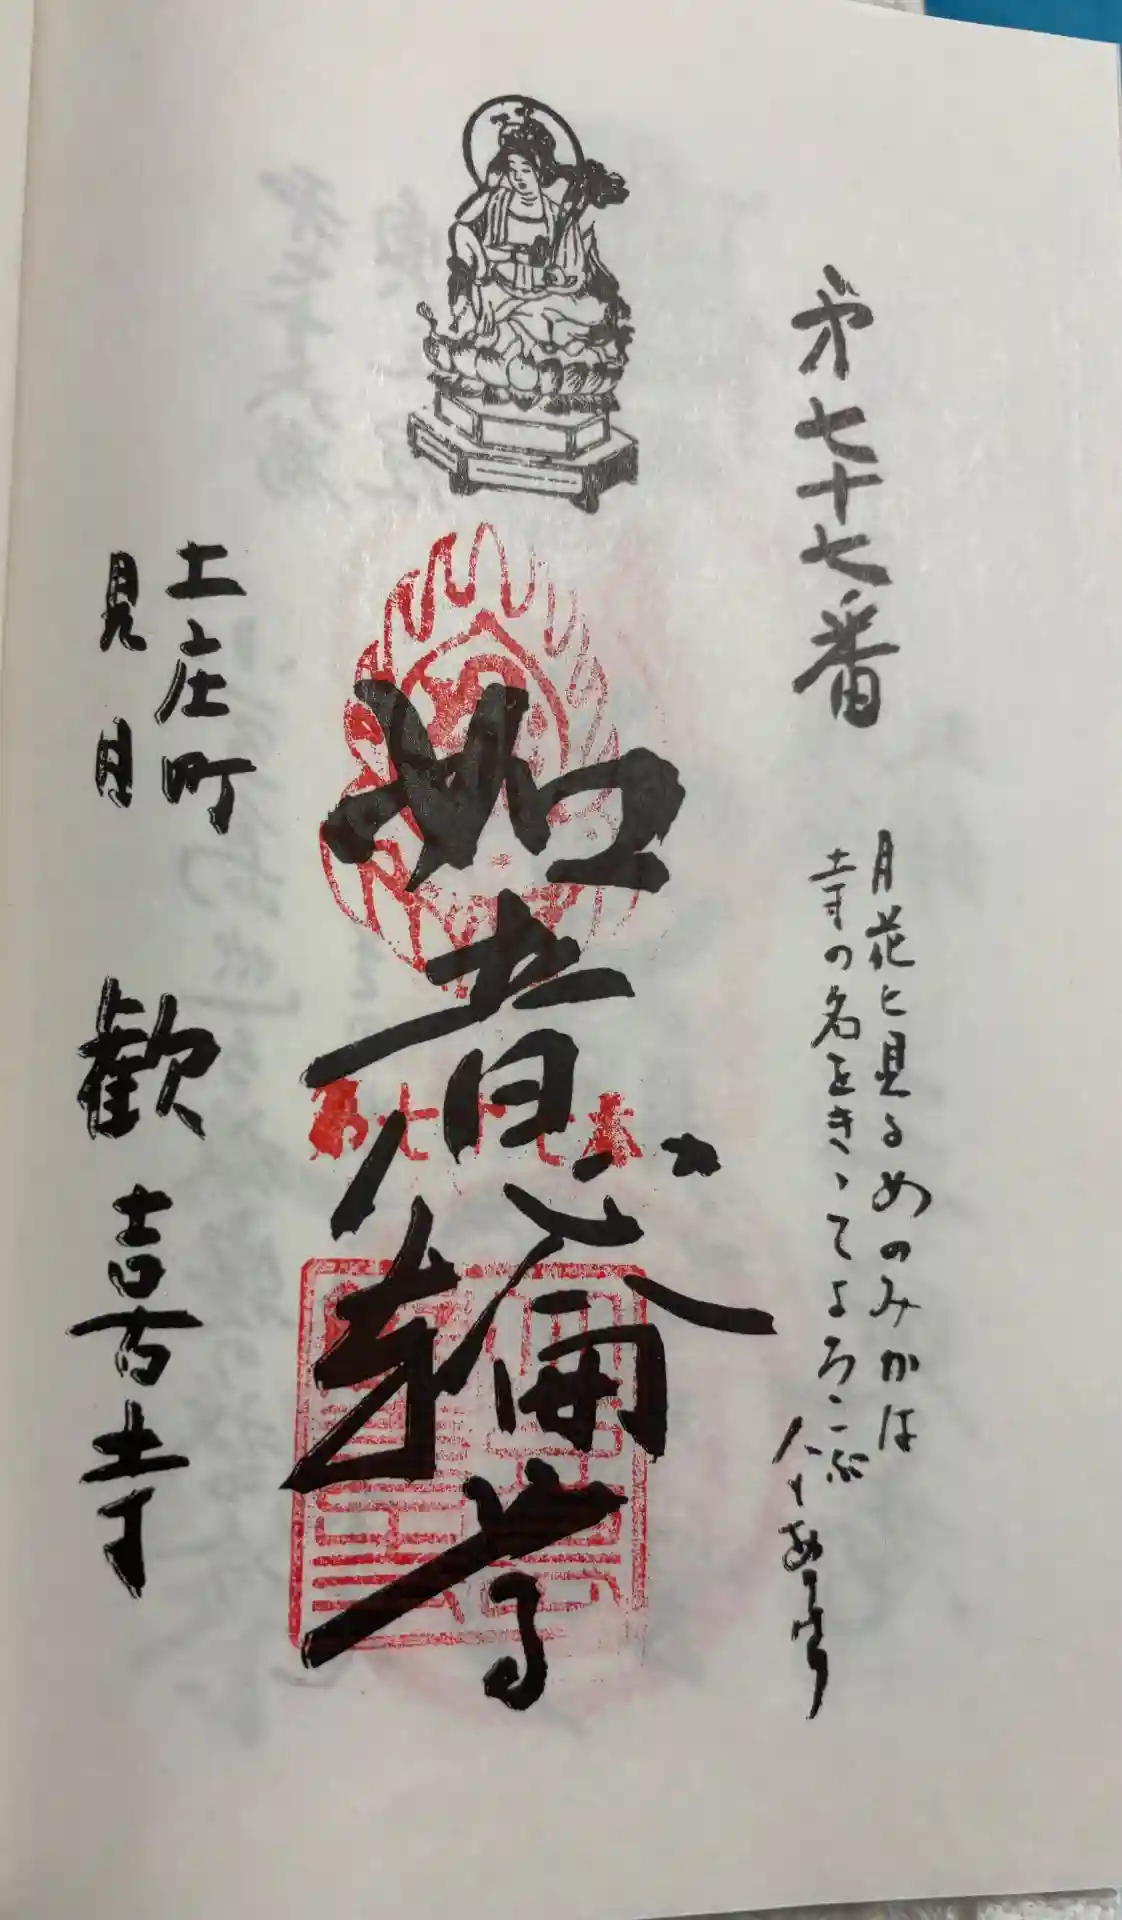 第七十七番
月花と見るめのみかは
寺の名をきゝてよろこぶ
人もあり
如意輪尊
第七十七番
土庄町
見目
歓喜寺